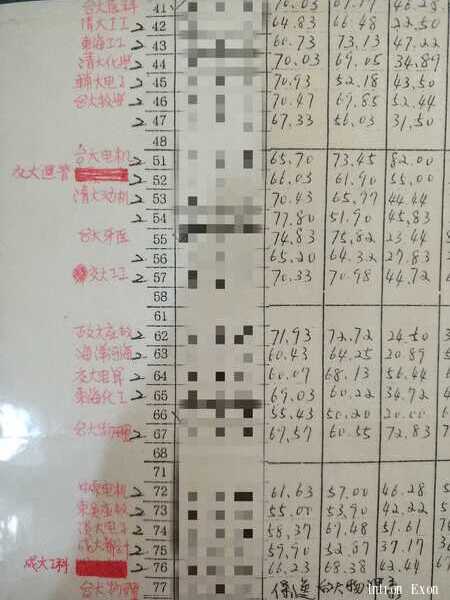 台大醫科 41 70.03 61.77 46.23
清大工工 2 42 64.83 66.48 22.50
東海工工 2 43 60.73 73.13 47.22
清大化學 2 44 70.03 69.05 34.89
輔大電子 2 45 70.93 52.18 43.50
台大數學 2 46 70.47 69.85 52.44
2 47 67.33 56.03 31.50
48
台大電機 2 51 65.70 73.45 82.00
交大運管 2 52 66.03 61.90 55.00
清大動機 2 53 70.43 65.77 44.44
2 54 77.80 51.90 45.83
台大牙醫 55 74.83 75.82 23.44
2 56 65.20 64.32 27.83
交大工工 2 57 70.33 70.98 44.72
58
61
2 62 71.93 72.72 24.50
海洋河海 2 63 60.43 64.25 20.89
2 64 60.07 68.13 56.44
東海化工 2 65 69.03 60.22 34.72
66 55.43 50.20 20.00
台大物理 2 67 69.57 60.55 72.83
68
71
中原電機 2 72 61.63 57.00 46.28
2 73 55.00 53.90 42.22
2 74 58.37 67.48 51.61
2 75 59.90 52.07 37.17
成大工科 2 76 66.23 68.38 42.44
台大物理 77 保送台大物理
Intron Exon